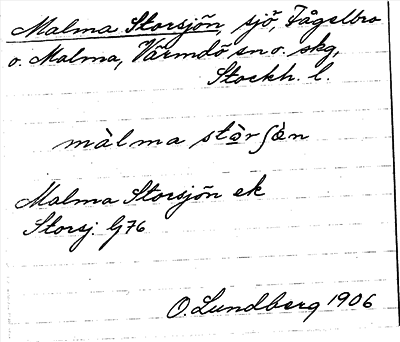 Malma Storsjön, sjö, Fågelbro
o. Malma, Värmdö sn o. skg,
Stockh. l.
màlma stò̱rʃö̀n
Malma Storsjön ek
Storsj. G76
O. Lundberg 1906